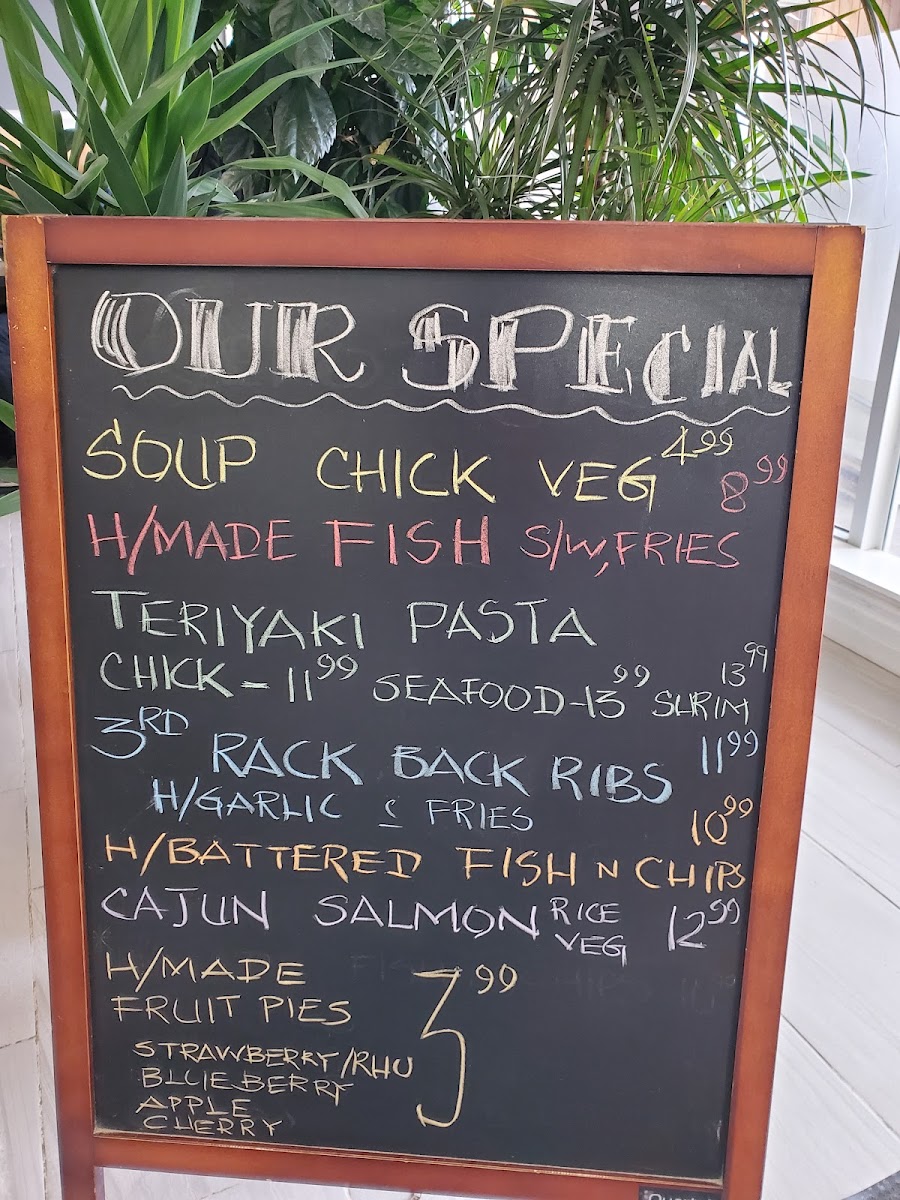 OUR SPECIAL
SOUP CHICK VEG 4.99
8.99
H/MADE FISH S/W, FRIES
TERIYAKI PASTA
CHICK - 11.99 SEAFOOD - 13.99 SHRIM 13.99
3RD RACK BACK RIBS 11.99
H/GARLIC & FRIES
10.99
H/BATTERED FISH N CHIPS
CAJUN SALMON RICE VEG 12.99
H/MADE
FRUIT PIES 3.99
STRAWBERRY/RHU
BLUEBERRY
APPLE
CHERRY